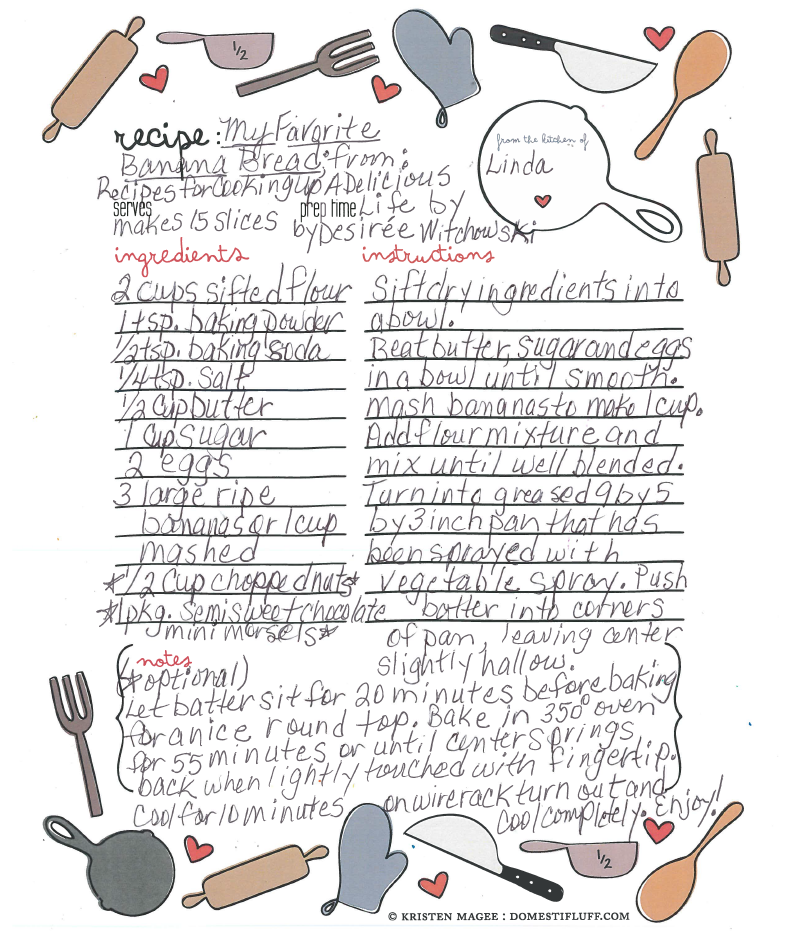 1/2
recipe: My Favorite
Banana Bread; from:
Recipes for Cooking up A Delicious
serves prep time Life by
makes 15 slices by Desirée Witchowski
from the kitchen of
Linda
ingredients
2 cups sifted flour
1 tsp. baking powder
1/2 tsp. baking soda
1/4 tsp. salt
1/2 cup butter
1 cup sugar
2 eggs
3 large ripe
bananas or 1 cup
mashed
*1/2 cup chopped nuts*
*1 pkg. semisweet chocolate
mini morsels*
instructions
Sift dry ingredients into
a bowl.
Beat butter, sugar and eggs
in a bowl until smooth.
mash bananas to make 1 cup.
Add flour mixture and
mix until well blended.
Turn into greased 9 by 5
by 3 inch pan that has
been sprayed with
vegetable spray. Push
batter into corners
of pan, leaving center
slightly hallow.
notes
(*optional)
Let batter sit for 20 minutes before baking
for a nice round top. Bake in 350° oven
for 55 minutes or until center springs
back when lightly touched with fingertip.
Cool for 10 minutes on wire rack turn out and
cool completely. Enjoy!
1/2
© KRISTEN MAGEE : DOMESTIFLUFF.COM